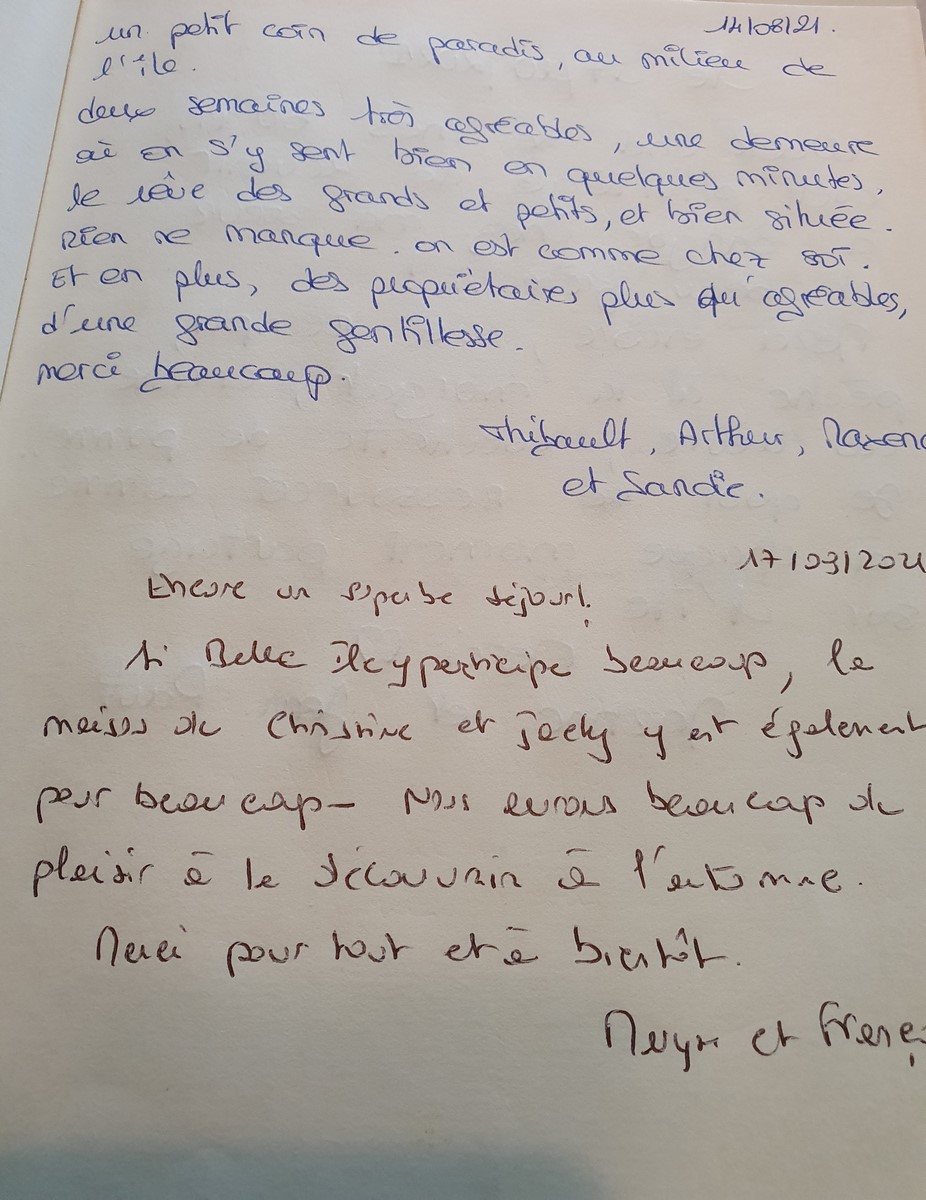 14/08/21.
un petit coin de paradis, au milieu de
l'île.
deux semaines très agréables, une demeure
où on s'y sent bien en quelques minutes,
le rêve des grands et petits, et bien située.
Rien ne manque. on est comme chez soi.
Et en plus, des propriétaires plus qu'agréables,
d'une grande gentillesse.
merci beaucoup.
Thibault, Arthur, Maxenc
et Sandie.
17/09/2021
Encore un superbe séjour!
Si Belle Ile y participe beaucoup, la
maison de Christine et Jacky y est également
pour beaucoup - Nous aurons beaucoup de
plaisir à la découvrir à l'automne.
Merci pour tout et à bientôt.
et Franç